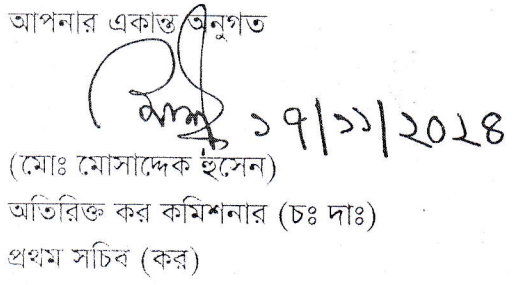 আপনার একান্ত অনুগত
১৭/১১/২০২৪
(মোঃ মোসাদ্দেক হুসেন)
অতিরিক্ত কর কমিশনার (চঃ দাঃ)
প্রথম সচিব (কর)